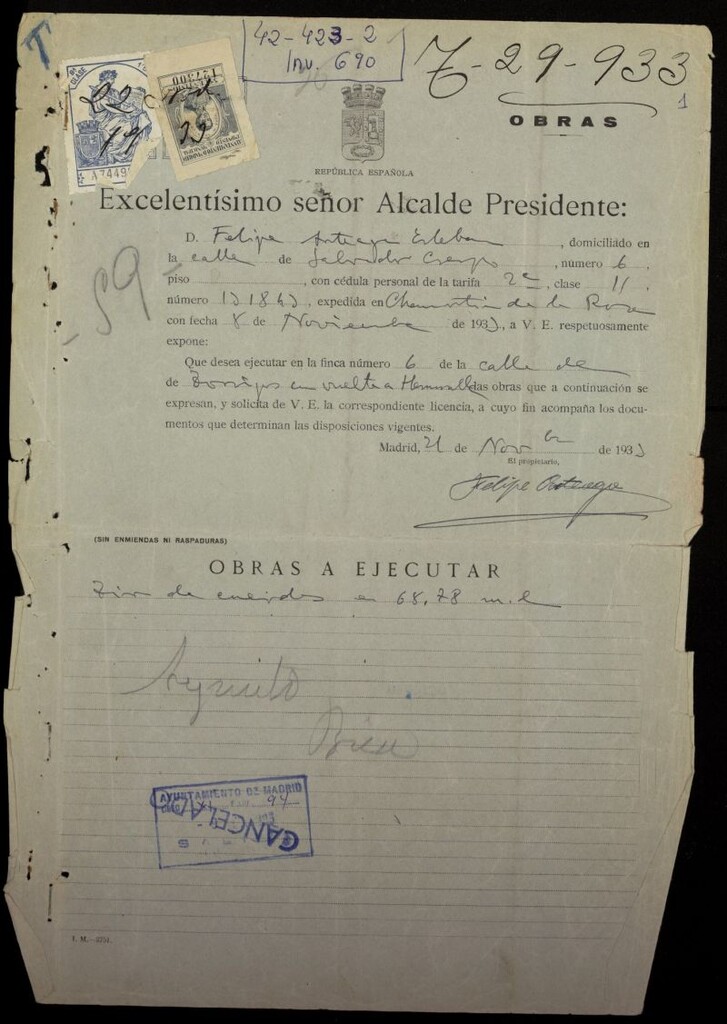 42-423-2
Inv. 690
T-29-933
1
OBRAS
T
8ª CLASE
A7449
127300
22
19 33
REPÚBLICA ESPAÑOLA
Excelentísimo señor Alcalde Presidente:
59
D. Felipe Arteaga Esteban, domiciliado en
la calle de Salvador Crespo, número 6,
piso - , con cédula personal de la tarifa 2ª, clase 11,
número , expedida en Chamartín de la Rosa
con fecha 8 de Noviembre de 1933, a V. E. respetuosamente
expone:
Que desea ejecutar en la finca número 6 de la calle de
de Torrijos con vuelta a Hermosilla las obras que a continuación se
expresan, y solicita de V. E. la correspondiente licencia, a cuyo fin acompaña los docu-
mentos que determinan las disposiciones vigentes.
Madrid, 21 de Novbre de 1933
El propietario,
Felipe Arteaga
(SIN ENMIENDAS NI RASPADURAS)
OBRAS A EJECUTAR
Tira de cuerdas en 68,78 m.l.
AYUNTAMIENTO DE MADRID
94
CANCELADO
I. M.—3751.